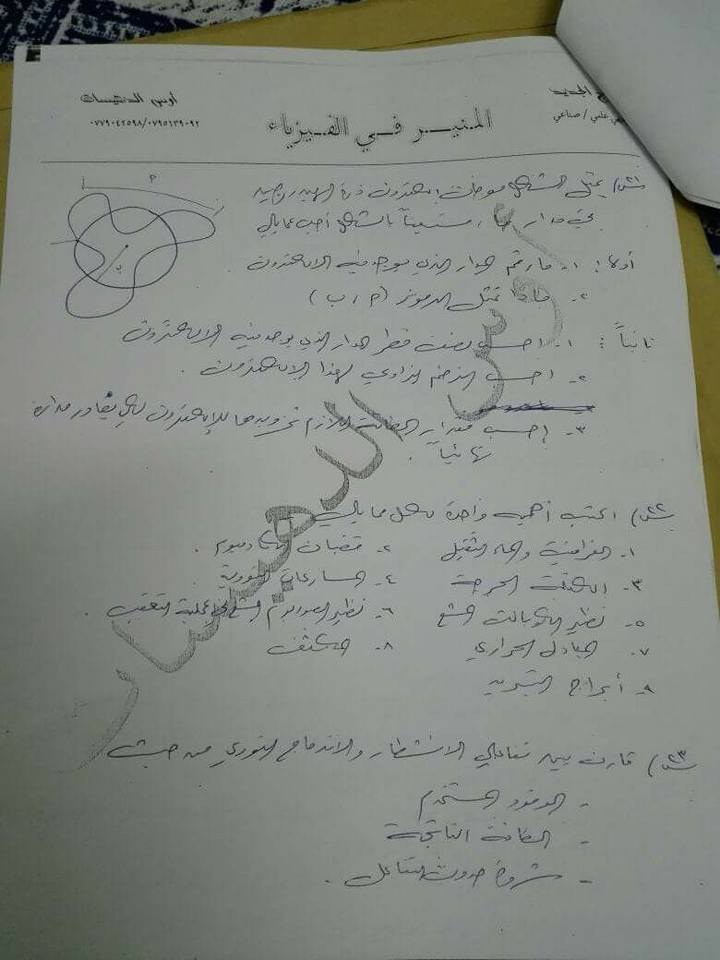 أوس الدهيسات
٠٧٧٩٠٤٢٥٩٨/٠٧٩٥١٣٩٠٩٢
المنير في الفيزياء
علمي / صناعي
س٢١) يمثل الشكل موجات إلكترون ذرة الهيدروجين
في مدار ما ، مستعيناً بالشكل أجب عما يلي
أولاً : ١- ما رقم المدار الذي يوجد فيه الإلكترون
٢- ماذا تمثل الرموز ( م ، ب )
ثانياً : ١- احسب نصف قطر المدار الذي يوجد فيه الإلكترون
٢- احسب الزخم الزاوي لهذا الإلكترون .
٣- إحسب مقدار الطاقة اللازم تزويدها للإلكترون لكي يغادر مداره
نهائياً .
س٢٢) اكتب أهمية واحدة لكل مما يلي
١- الغرافيت والماء الثقيل
٢- قضبان الكادميوم .
٣- الكتلة الحرجة
٤- المسارعات النووية
٥- نظير الكوبالت المشع
٦- نظير الصوديوم المشع في عملية التعقب .
٧- المبادل الحراري
٨- المكثف
٩- أبراج التبريد
س٢٣) قارن بين تفاعلي الانشطار والاندماج النووي من حيث
- الوقود المستخدم
- الطاقة الناتجة
- شروط حدوث التفاعل .
م
ب
أوس الدهيسات